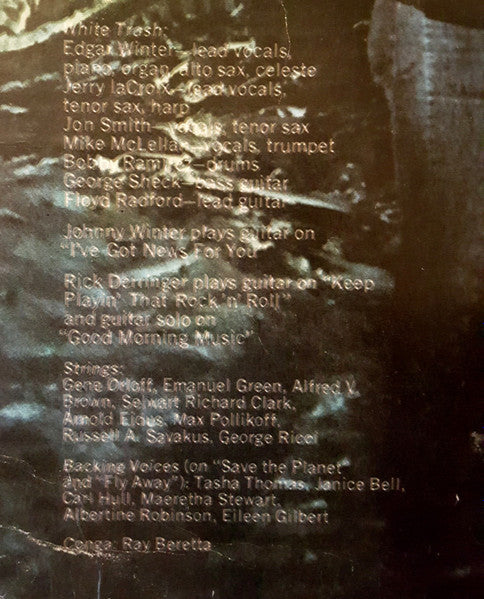 White Trash:
Edgar Winter—lead vocals,
piano, organ, alto sax, celeste
Jerry laCroix—lead vocals,
tenor sax, harp
Jon Smith—vocals, tenor sax
Mike McLellan—vocals, trumpet
Bobby Ramirez—drums
George Sheck—bass guitar
Floyd Radford—lead guitar
Johnny Winter plays guitar on
"I've Got News For You"
Rick Derringer plays guitar on "Keep
Playin' That Rock 'n' Roll"
and guitar solo on
"Good Morning Music"
Strings:
Gene Orloff, Emanuel Green, Alfred V.
Brown, Selwart Richard Clark,
Arnold Eidus, Max Pollikoff,
Russell A. Savakus, George Ricci
Backing Voices (on "Save the Planet"
and "Fly Away"): Tasha Thomas, Janice Bell,
Carl Hull, Maeretha Stewart,
Albertine Robinson, Eileen Gilbert
Conga: Ray Beretta